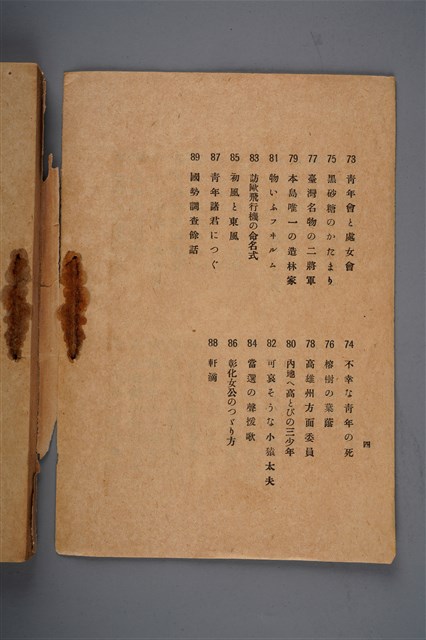 73 青年會と處女會
74 不幸な青年の死
75 黑砂糖のかたまり
76 榕樹の葉蔭
77 臺灣名物の二將軍
78 高雄州方面委員
79 本島唯一の造林家
80 內地へ高とびの三少年
81 物いふフヰルム
82 可哀そうな小猿太夫
83 訪歐飛行機の命名式
84 當選の聲援歌
85 初風と東風
86 彰化女公のつゞり方
87 青年諸君につぐ
88 軒滴
89 國勢調查餘話
四